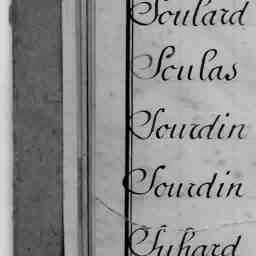 Soulard
Soulas
Sourdin
Sourdin
Suhard